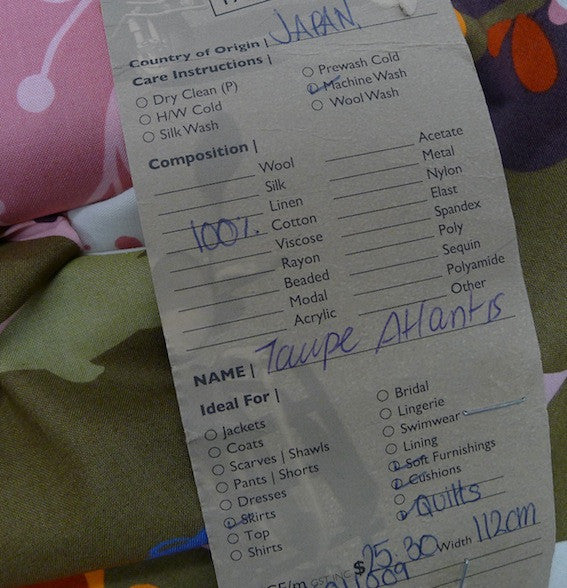 Country of Origin | JAPAN
Care Instructions |
Dry Clean (P)
H/W Cold
Silk Wash
Prewash Cold
Machine Wash
Wool Wash
Composition |
Wool
Silk
Linen
100% Cotton
Viscose
Rayon
Beaded
Modal
Acrylic
Acetate
Metal
Nylon
Elast
Spandex
Poly
Sequin
Polyamide
Other
NAME | Taupe Atlantis
Ideal For |
Jackets
Coats
Scarves | Shawls
Pants | Shorts
Dresses
Skirts
Top
Shirts
Bridal
Lingerie
Swimwear
Lining
Soft Furnishings
Cushions
Quilts
$25.30 Width 112cm